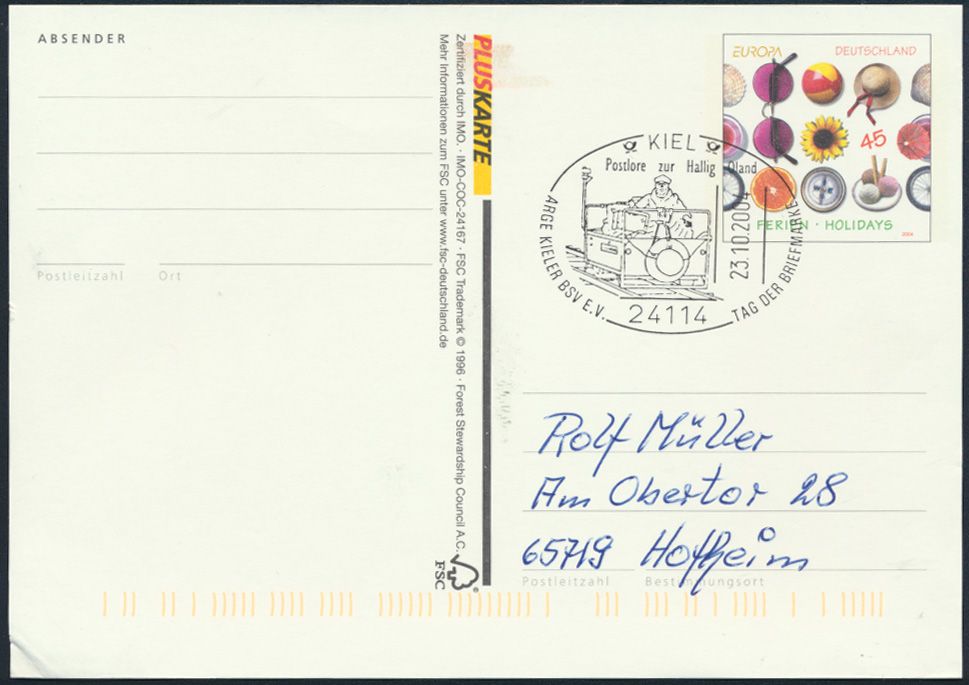 ABSENDER
Postleitzahl Ort
PLUSKARTE
Zertifiziert durch IMO. · IMO-COC-24167 · FSC Trademark © 1996 · Forest Stewardship Council A.C.
Mehr Informationen zum FSC unter www.fsc-deutschland.de
FSC
®
EUROPA DEUTSCHLAND
45
FERIEN · HOLIDAYS
2004
KIEL
Postlore zur Hallig Oland
23.10.2004
ARGE KIELER BSV E.V.
24114
TAG DER BRIEFMARKE
Rolf Müller
Am Obertor 28
65719 Hofheim
Postleitzahl Bestimmungsort